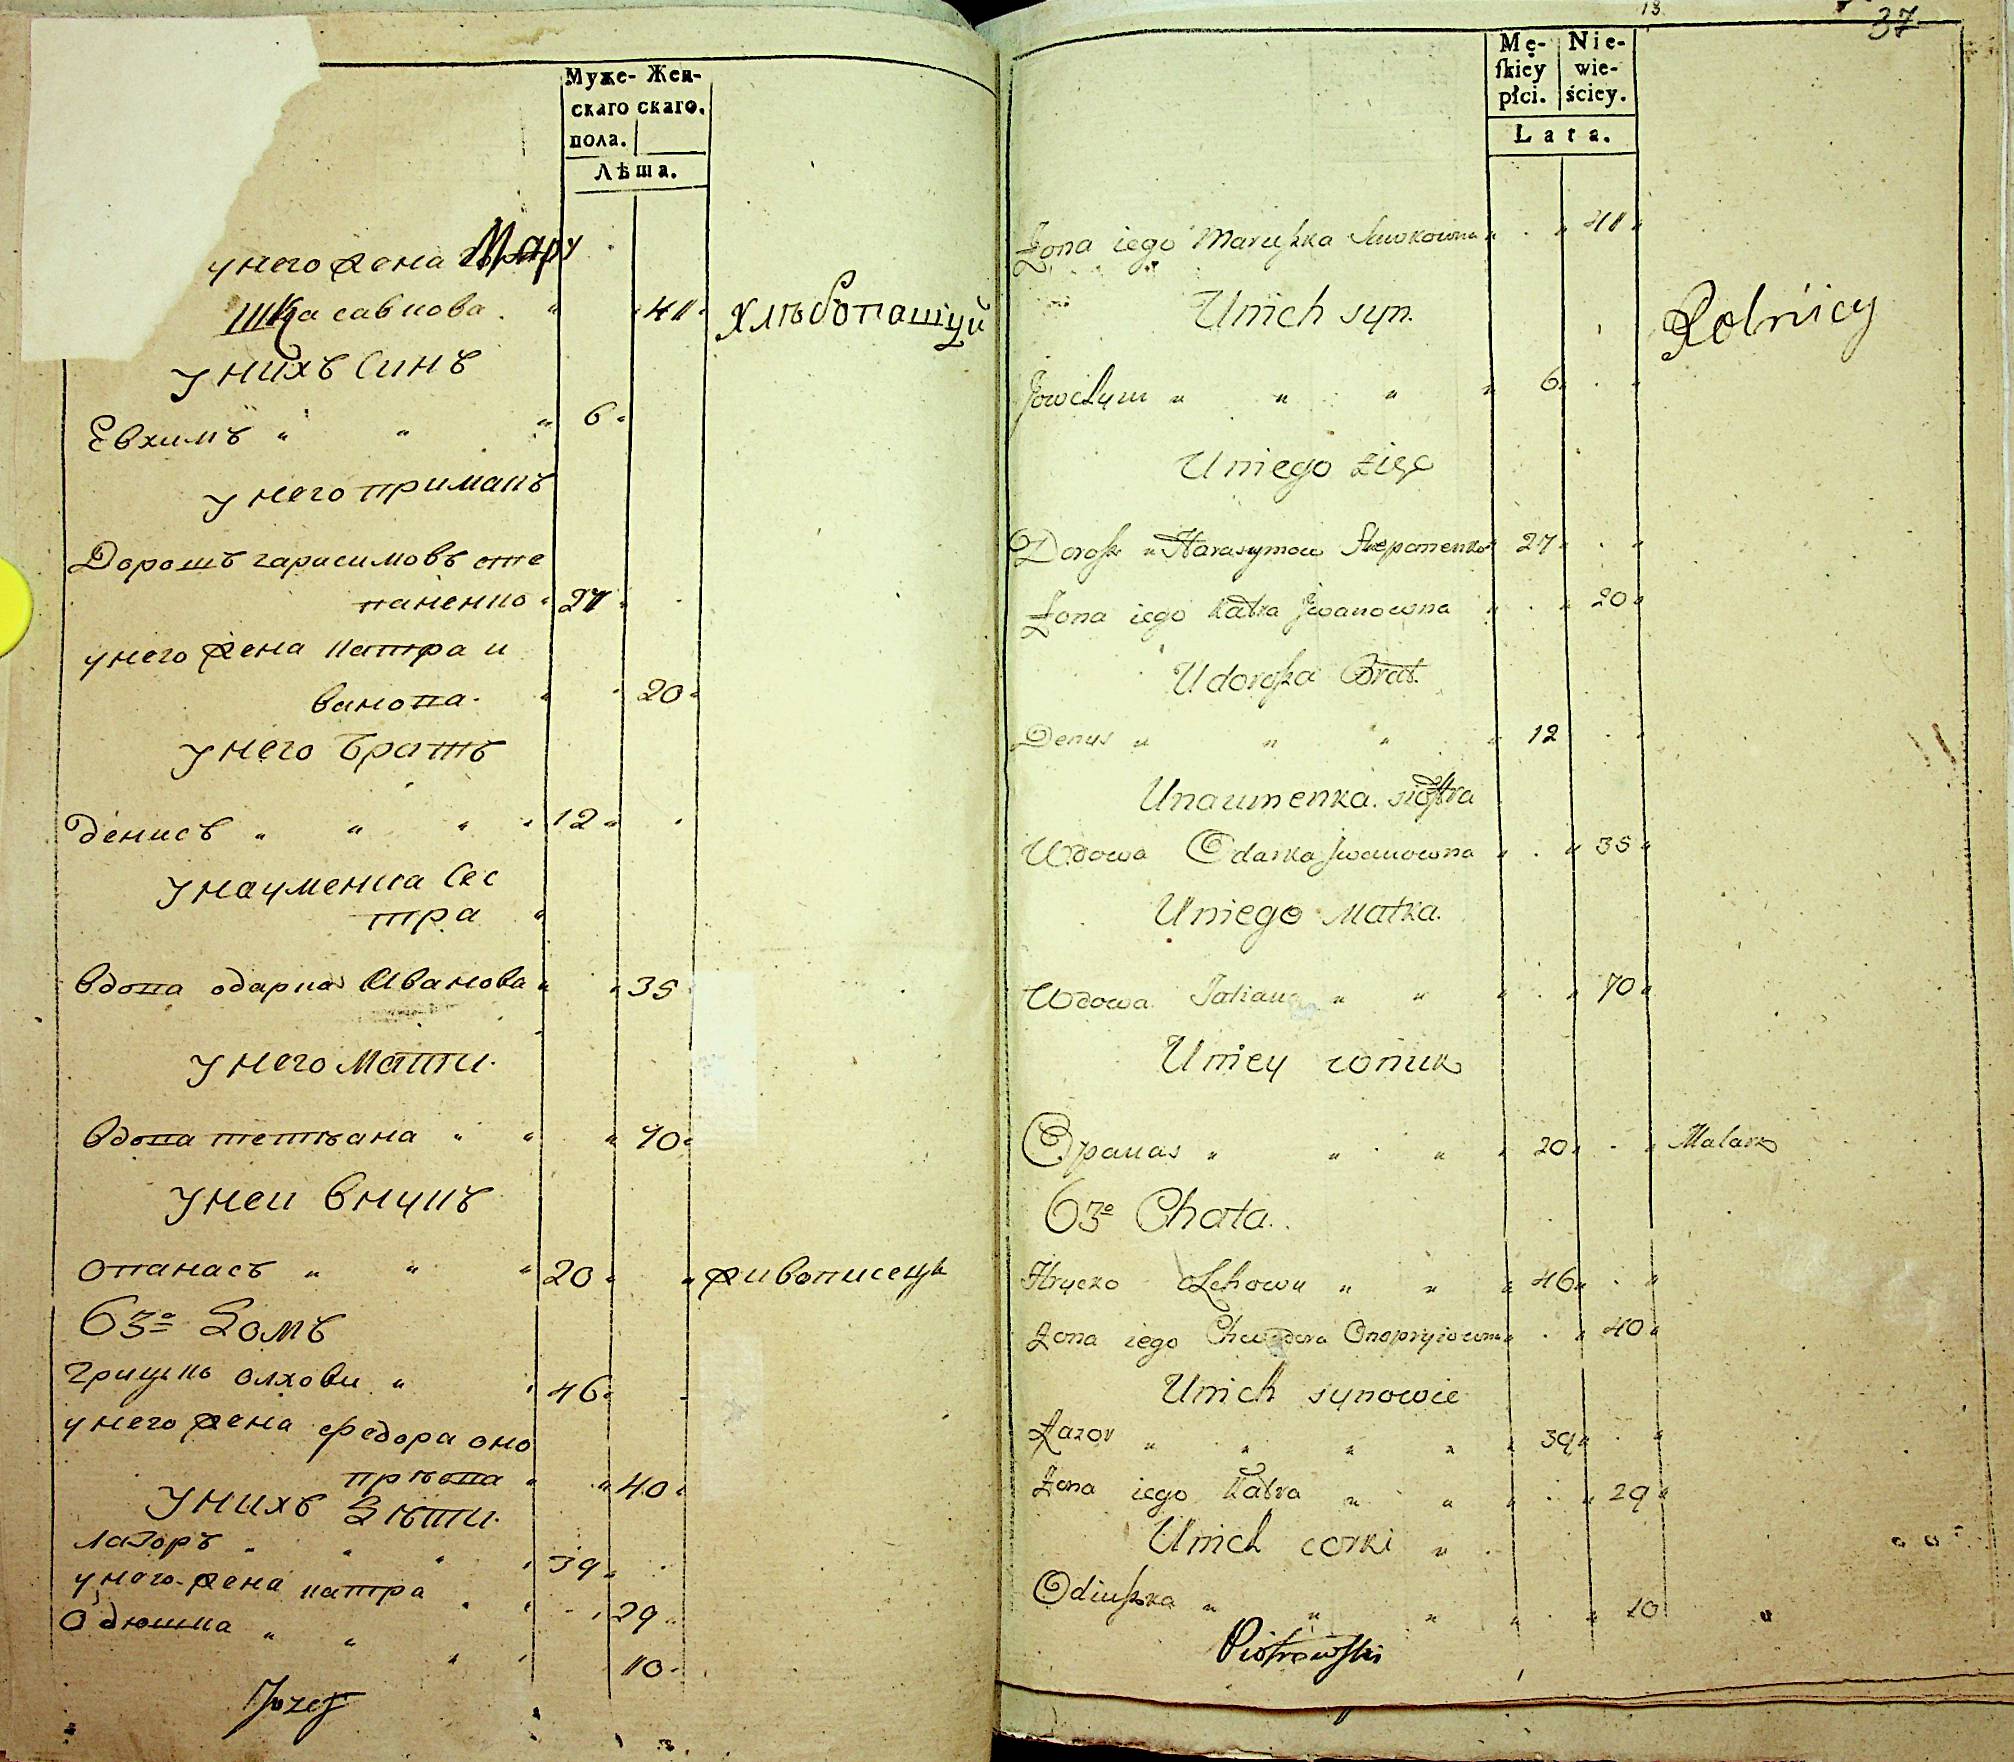 Муже- Жен-
скаго скаго.
пола.
Лѣта.
у него жена Мару
шка савкова " " 41 " Хлѣбопашцы
у нихъ Синъ
Евхимъ " " " 6 "
у него примакъ
Дорошъ гарасимовъ сте
паненко " 27 "
у него жена катра и
ванова " " 20 "
у него братъ
денисъ " " " " 12 "
у науменка Сес
тра "
вдова одарка Иванова " " 35
у него мати.
вдова тетѣана " " " 70 "
у неи внукъ
опанасъ " " " 20 " " живописецъ
63º Домъ
грицко олхови " " 46 "
у него жена федора оно
прѣева " " 40 "
у нихъ Дѣти.
лазоръ " " " " 39 "
у него жена катра " " " 29 "
одюшка " " " " 10 "
Jozef
13
37
Mę- Nie-
ſkiey wie-
płci. ściey.
Lata.
Żona iego Maruszka Sawkowna " . " 41 "
Unich syn. Rolnicy
Jowchym " " " " 6 " . "
Uniego zięć
Dorosz " Harasymow Stepanenko " 27 " . "
Żona iego Katra Jwanowna " . " 20 "
Udorosza Brat.
Denys " " " " 12 . "
Unaumenka. siostra
Wdowa Odarka Jwanowna " . " 35 "
Uniego Matka.
Wdowa Tatiana " " " . " 70 "
Uniey wnuk
Opanas " " " " 20 " . " Malarz
63º Chata.
Hrycko Olchowy " " " 46 " . "
Żona iego Chwedora Onopryiowna " . " 40 "
Unich synowie
Łazor " " " " " 39 " . "
Żona iego Katra " " " . " 29 "
Unich corki "
Odiuszka " " " " . " 10 "
Piotrowski